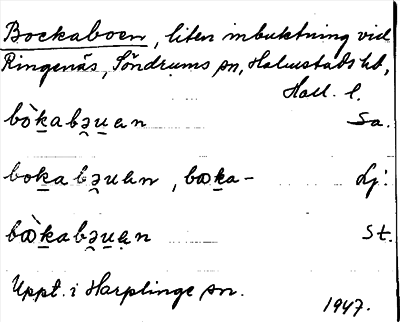 Bockaboen, liten inbuktning vid
Ringenäs, Söndrums sn, Halmstads hd,
Hall. l.
bòkabəuan Sa.
bokabəuan, bœka- Lj.
bœ̀kabəuan St.
Uppt. i Harplinge sn.
1947.